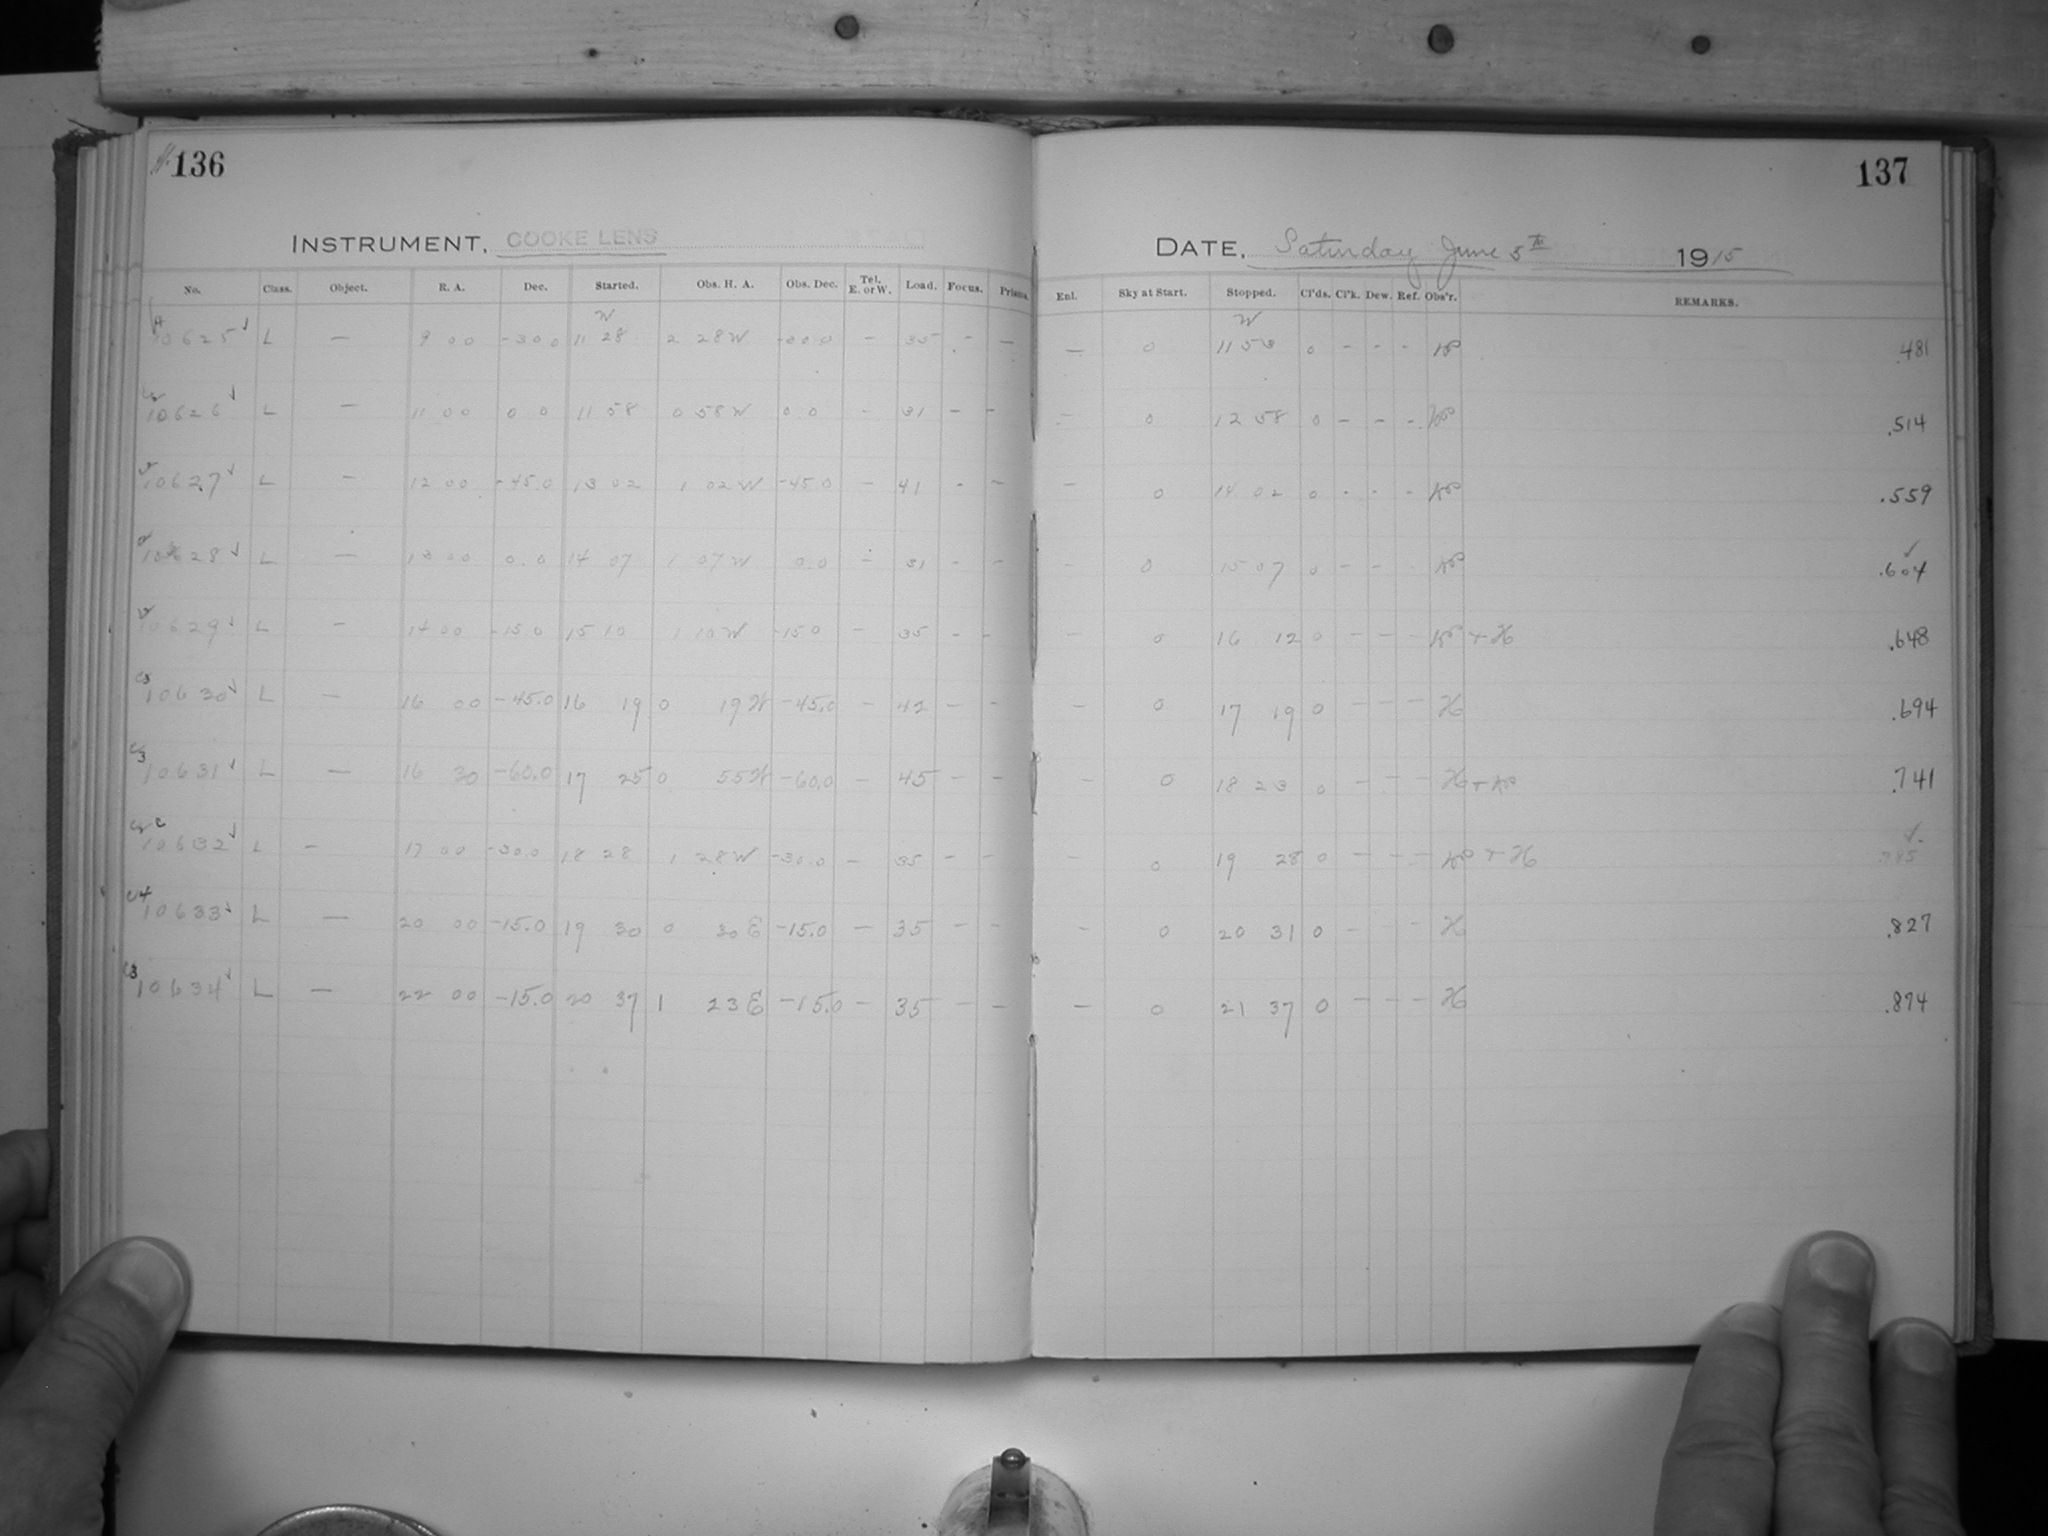 136
137
INSTRUMENT, COOKE LENS
DATE, Saturday June 5th 1915
No. Class. Object. R. A. Dec. Started. Obs. H. A. Obs. Dec. Tel. E. or W. Load. Focus. Prisms. Enl. Sky at Start. Stopped. Cl'ds. Cl'k. Dew. Ref. Obs'r. REMARKS.
W W
10625 L — 9 00 -30.0 11 28 2 28 W -30.0 - 35 - - — 0 11 53 0 - - - .481
10626 L — 11 00 0 0 11 58 0 58 W 0 0 - 31 - - - 0 12 58 0 - - - .514
10627 L — 12 00 -45.0 13 02 1 02 W -45.0 - 41 - - - 0 14 02 0 - - - .559
10628 L — 13 00 0.0 14 07 1 07 W 0.0 - 31 - - - 0 15 07 0 - - .604
10629 L — 14 00 -15 0 15 10 1 10 W -15 0 - 35 - - - 0 16 12 0 - - - + H .648
10630 L — 16 00 -45.0 16 19 0 19 W -45.0 - 42 - - - 0 17 19 0 - - - H .694
10631 L — 16 30 -60.0 17 25 0 55 W -60.0 - 45 - - - 0 18 23 0 - - - H + .741
10632 L — 17 00 -30.0 18 28 1 28 W -30.0 - 35 - - - 0 19 28 0 - - - + H .785
10633 L — 20 00 -15.0 19 30 0 30 E -15.0 - 35 - - - 0 20 31 0 - - H .827
10634 L — 22 00 -15.0 20 37 1 23 E -15.0 - 35 - - - 0 21 37 0 - - - H .874